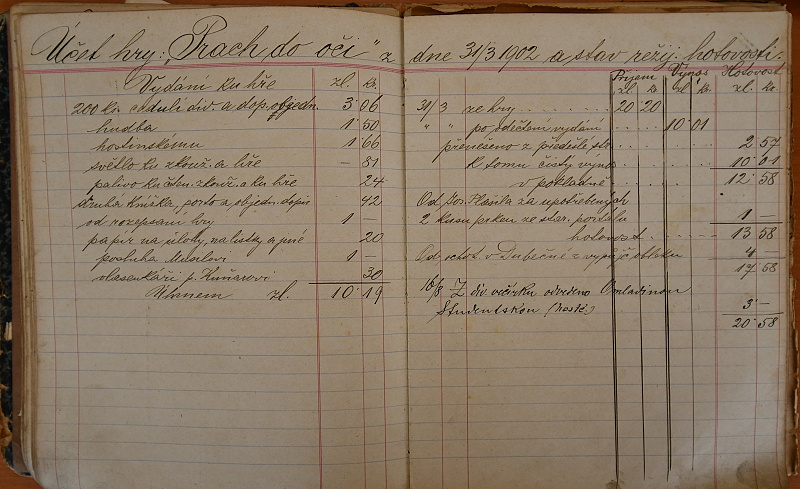 Účet hry: „Prach do očí" z dne 31/3 1902 a stav režij. hotovosti.
Vydání ku hře zl. kr.
200 ks. cedulí div. a dop. objedn. 3 06
hudba 1 50
hostinskému 1 66
světlo ku zkouš. a hře — 81
palivo ku čten. zkouš. a ku hře 24
druhá knížka, porto a objedn. dopis 42
od rozepsání hry 1 —
papír na úlohy, na lístky a jiné 20
posluha 1 —
vlasenkáři p. 30
Úhrnem zl. 10 19
Příjem Výnos Hotovost
zl. kr. zl. kr. zl. kr.
31/3 ze hry 20 20
" " po odečtení vydání 10 01
přenešeno z předešlé str. 2 57
K tomu čistý výnos 10 01
v pokladně 12 58
Od Jos. za upotřebených
2 kusů prken ze star. portálu 1 —
hotovost 13 58
Od ochot. v Dubečné z výpůjč. obleku 4
17 58
Z div. věčírku odvedeno Omladinou
Studentskou 3 —
20 58